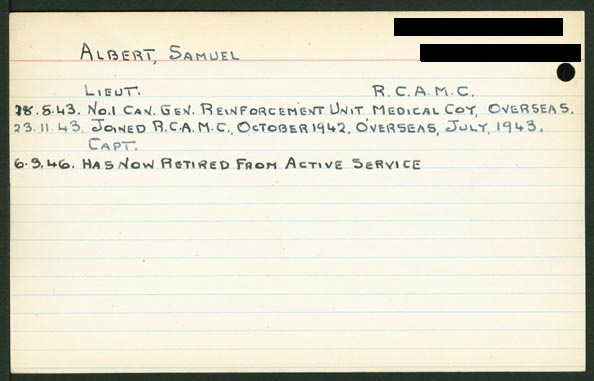 ALBERT, SAMUEL
LIEUT. R.C.A.M.C.
28.8.43. NO.1 CAN. GEN. REINFORCEMENT UNIT MEDICAL COY, OVERSEAS.
23.11.43. JOINED R.C.A.M.C., OCTOBER 1942. OVERSEAS, JULY, 1943.
CAPT.
6.3.46. HAS NOW RETIRED FROM ACTIVE SERVICE